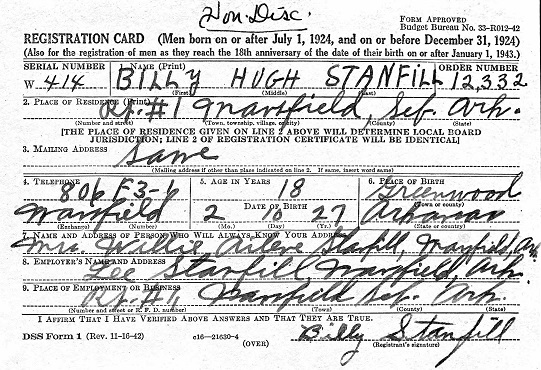 Hon. Disc.
FORM APPROVED
Budget Bureau No. 33-R012-42
REGISTRATION CARD (Men born on or after July 1, 1924, and on or before December 31, 1924)
(Also for the registration of men as they reach the 18th anniversary of the date of their birth on or after January 1, 1943.)
SERIAL NUMBER 1. NAME (Print) ORDER NUMBER
W 414 BILLY HUGH STANFILL 12,332
(First) (Middle) (Last)
2. PLACE OF RESIDENCE (Print)
Rt. #1 Mansfield Seb. Ark.
(Number and street) (Town, township, village, or city) (County) (State)
[THE PLACE OF RESIDENCE GIVEN ON LINE 2 ABOVE WILL DETERMINE LOCAL BOARD
JURISDICTION; LINE 2 OF REGISTRATION CERTIFICATE WILL BE IDENTICAL]
3. MAILING ADDRESS
Same
(Mailing address if other than place indicated on line 2. If same, insert word same)
4. TELEPHONE 5. AGE IN YEARS 6. PLACE OF BIRTH
806 F3-6 18 Greenwood
(Town or county)
DATE OF BIRTH
Mansfield 2 10 27 Arkansas
(Exchange) (Number) (Mo.) (Day) (Yr.) (State or country)
7. NAME AND ADDRESS OF PERSON WHO WILL ALWAYS KNOW YOUR ADDRESS
Mrs. Stanfill, Mansfield, Ark.
8. EMPLOYER'S NAME AND ADDRESS
Lee Stanfill Mansfield, Ark.
9. PLACE OF EMPLOYMENT OR BUSINESS
Rt. #1 Mansfield Seb. Ark.
(Number and street or R. F. D. number) (Town) (County) (State)
I AFFIRM THAT I HAVE VERIFIED ABOVE ANSWERS AND THAT THEY ARE TRUE.
Billy Stanfill
DSS Form 1 (Rev. 11-16-42) c16—21630-4 (Registrant's signature)
(OVER)